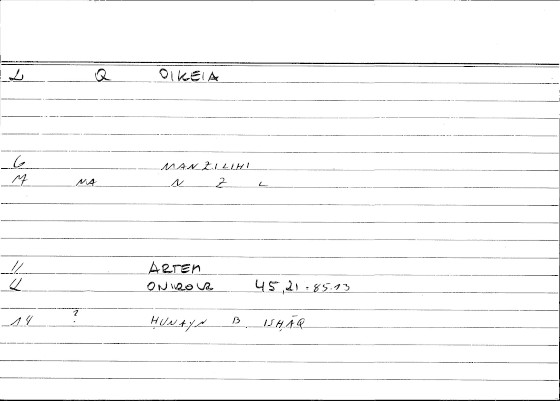 1 Q OIKEIA
6 MANZILIHI
M MA N Z L
11 ARTEM
12 ONIROCR 45,21 - 85.13
14 ? ḤUNAYN B. ISḤĀQ